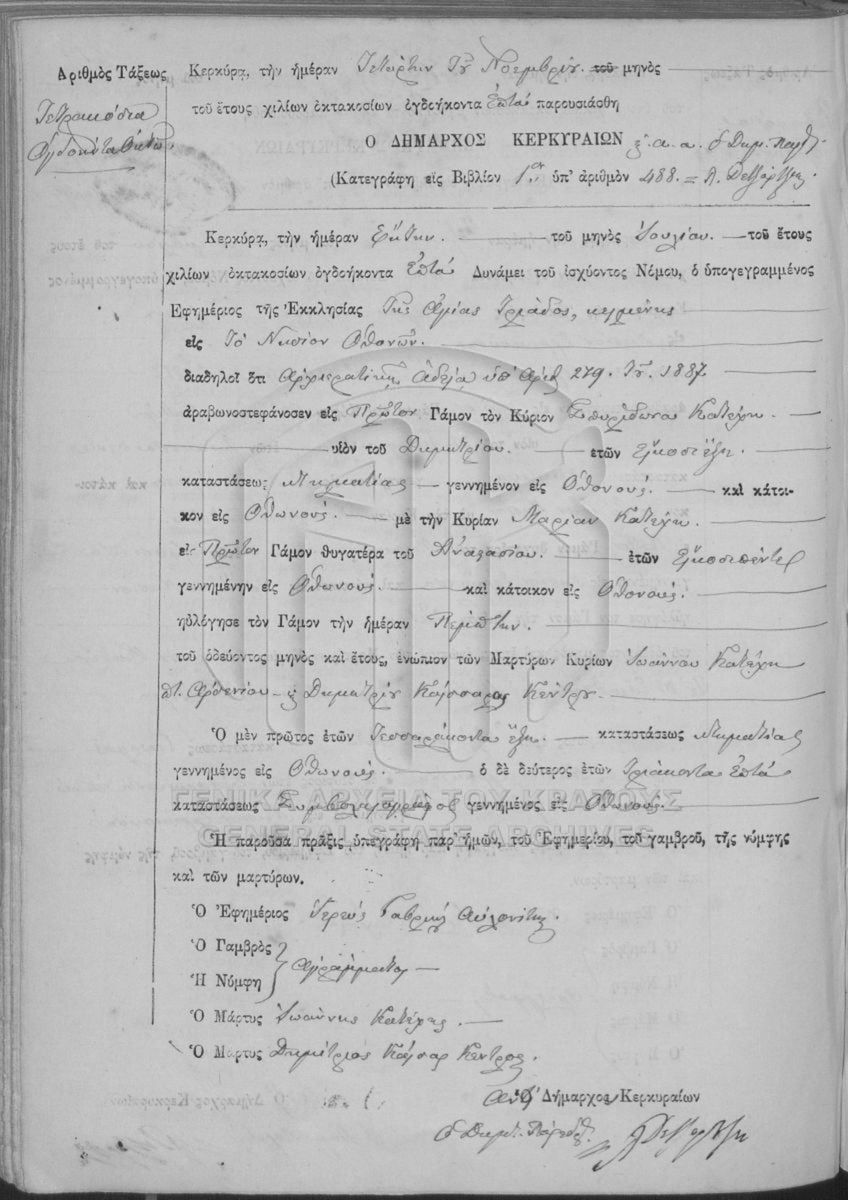 Ἀριθμὸς Τάξεως
Τετρακόσια
Ὀγδοήντα Ὀκτώ
Κερκύρᾳ, τὴν ἡμέραν Τετάρτην Τοῦ Νοεμβρίου τοῦ μηνὸς
τοῦ ἔτους χιλίων ὀκτακοσίων ὀγδοήκοντα Ἑπτὰ παρουσιάσθη
Ὁ ΔΗΜΑΡΧΟΣ ΚΕΡΚΥΡΑΙΩΝ
(Κατεγράφη εἰς Βιβλίον 1ον ὑπ' ἀριθμὸν 488.
Κερκύρᾳ, τὴν ἡμέραν Ἕκτην. τοῦ μηνὸς Ἰουλίου. τοῦ ἔτους
χιλίων ὀκτακοσίων ὀγδοήκοντα Ἑπτὰ Δυνάμει τοῦ ἰσχύοντος Νόμου, ὁ ὑπογεγραμμένος
Ἐφημέριος τῆς Ἐκκλησίας Τῆς Ἁγίας Τριάδος, κειμένης
εἰς Τὸ Νησίον Ὀθονῶν.
διαδηλοῖ ὅτι Ἀρχιερατικῇ Ἀδείᾳ ὑπ' Ἀριθ 279. Τοῦ 1887
ἀραβωνοστεφάνοσεν εἰς Πρῶτον Γάμον τὸν Κύριον Σπυρίδωνα Κατέχη.
υἱὸν τοῦ Δημητρίου. ἐτῶν Εἴκοσι ἕξη.
καταστάσεως κτηματίας γεννημένον εἰς Ὀθονούς. καὶ κάτοι-
κον εἰς Ὀθωνούς. μὲ τὴν Κυρίαν Μαρίαν Κατέχη.
εἰς Πρῶτον Γάμον θυγατέρα τοῦ Ἀναστασίου. ἐτῶν Εἴκοσι πέντε
γεννημένην εἰς Ὀθωνούς. καὶ κάτοικον εἰς Ὀθονούς.
ηὐλόγησε τὸν Γάμον τὴν ἡμέραν Πέμπτην.
τοῦ ὁδεύοντος μηνὸς καὶ ἔτους, ἐνώπιον τῶν Μαρτύρων Κυρίων Ἰωάννου Κατέχη
Ἀρσενίου Δημητρίου Κάϊσσαρος Κέντρου.
Ὁ μὲν πρῶτος ἐτῶν Τεσσαράκοντα ἕξη. καταστάσεως κτηματίας
γεννημένος εἰς Ὀθωνούς. ὁ δὲ δεύτερος ἐτῶν Τριάκοντα Ἑπτὰ
καταστάσεως Συμβολαιογράφος γεννημένος εἰς Ὀθωνούς.
ΓΕΝΙΚΑ ΑΡΧΕΙΑ ΤΟΥ ΚΡΑΤΟΥΣ
GENERAL STATE ARCHIVES
Ἡ παροῦσα πρᾶξις ὑπεγράφη παρ' ἡμῶν, τοῦ Ἐφημερίου, τοῦ γαμβροῦ, τῆς νύμφης
καὶ τῶν μαρτύρων.
Ὁ Ἐφημέριος Ἱερεὺς Γαβριὴλ Αὐλονίτης.
Ὁ Γαμβρὸς
Ἀγράμματοι
Ἡ Νύμφη
Ὁ Μάρτυς Ἰωάννης Κατέχης.
Ὁ Μάρτυς Δημήτριος Κάϊσαρ Κέντρος.
Ὁ Δήμαρχος Κερκυραίων